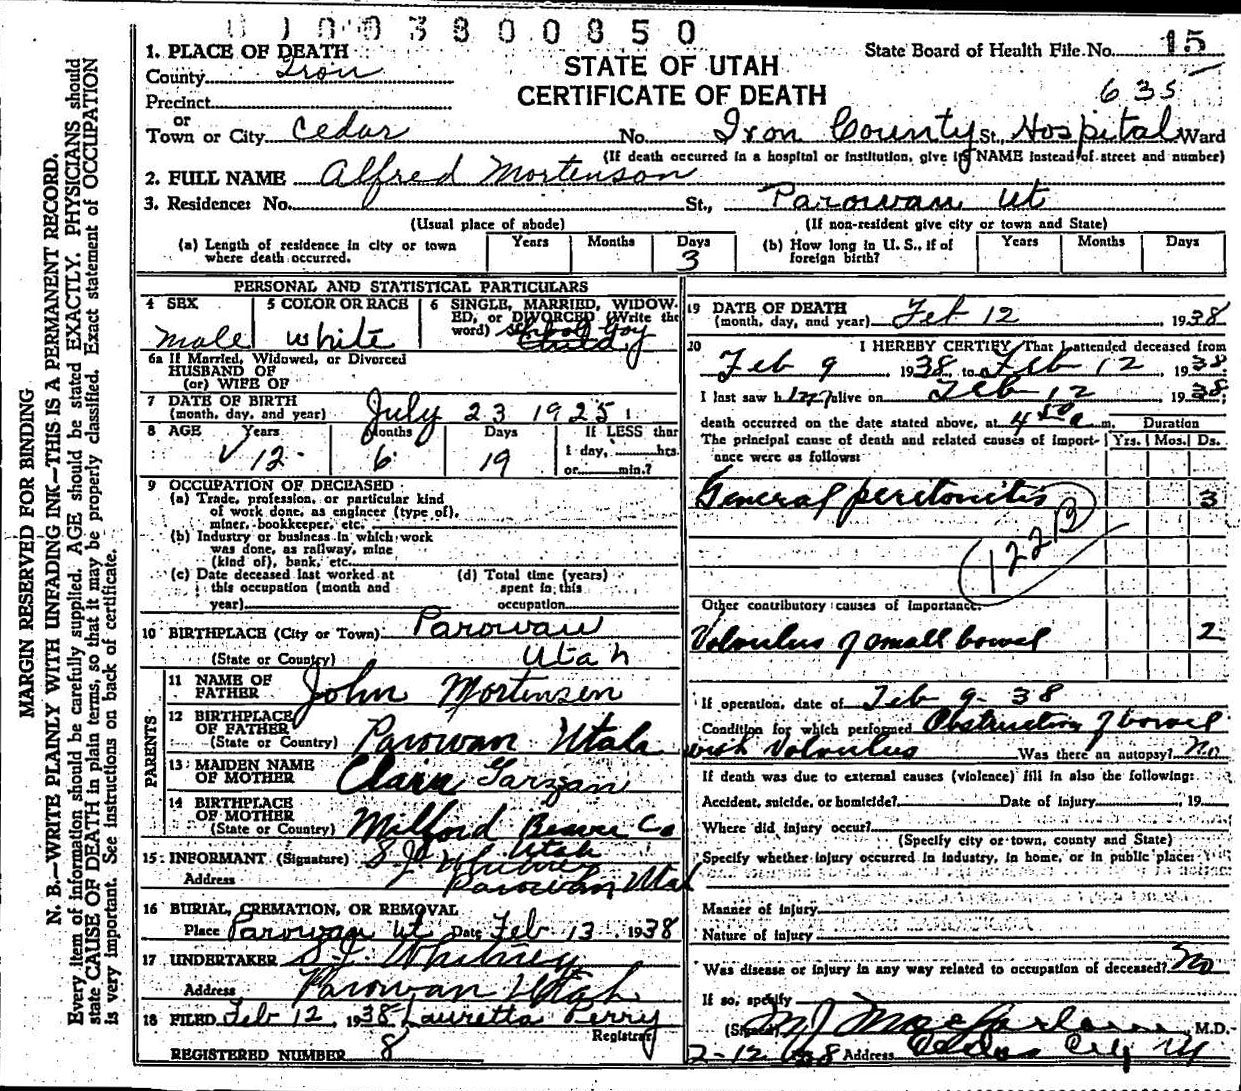 0100380 0850
1. PLACE OF DEATH
County Iron
STATE OF UTAH
CERTIFICATE OF DEATH
State Board of Health File No. 15
635
Precinct
or
Town or City Cedar No. Iron County St., Hospital Ward
(If death occurred in a hospital or institution, give its NAME instead of street and number)
2. FULL NAME Alfred Mortenson
3. Residence: No. St., Parowan Ut
(Usual place of abode) (If non-resident give city or town and State)
(a) Length of residence in city or town where death occurred. Years Months Days 3
(b) How long in U. S., if of foreign birth? Years Months Days
PERSONAL AND STATISTICAL PARTICULARS
4 SEX male
5 COLOR OR RACE white
6 SINGLE, MARRIED, WIDOWED, or DIVORCED (Write the word) School boy Child
6a If Married, Widowed, or Divorced
HUSBAND OF
(or) WIFE OF
7 DATE OF BIRTH
(month, day, and year) July 23 1925
8 AGE Years 12 Months 6 Days 19 If LESS than 1 day, hrs. or min.?
9 OCCUPATION OF DECEASED
(a) Trade, profession, or particular kind
of work done, as engineer (type of),
miner, bookkeeper, etc.
(b) Industry or business in which work
was done, as railway, mine
(kind of), bank, etc.
(c) Date deceased last worked at
this occupation (month and
year)
(d) Total time (years)
spent in this
occupation
10 BIRTHPLACE (City or Town) Parowan
(State or Country) Utah
PARENTS
11 NAME OF FATHER John Mortensen
12 BIRTHPLACE OF FATHER
(State or Country) Parowan Utah
13 MAIDEN NAME OF MOTHER Clara
14 BIRTHPLACE OF MOTHER
(State or Country) Milford Beaver Co
Utah
15 INFORMANT (Signature) S. J. Whitney
Address Parowan Utah
16 BURIAL, CREMATION, OR REMOVAL
Place Parowan Ut Date Feb 13 1938
17 UNDERTAKER S. J. Whitney
Address Parowan Utah
18 FILED Feb 12, 1938 Lauretta Perry
Registrar
REGISTERED NUMBER 8
19 DATE OF DEATH
(month, day, and year) Feb 12 1938
20 I HEREBY CERTIFY, That I attended deceased from
Feb 9 1938, to Feb 12 1938
I last saw him alive on Feb 12 1938;
death occurred on the date stated above, at 4 50 a m. Duration
The principal cause of death and related causes of importance were as follows: Yrs. Mos. Ds.
General peritonitis 3
122B
Other contributory causes of importance:
Volvulus of small bowel 2
If operation, date of Feb 9 - 38
Condition for which performed Obstruction of bowel
with Volvulus Was there an autopsy? No
If death was due to external causes (violence) fill in also the following:
Accident, suicide, or homicide? Date of Injury , 19
Where did injury occur?
(Specify city or town, county and State)
Specify whether injury occurred in industry, in home, or in public place:
Manner of injury
Nature of injury
Was disease or injury in any way related to occupation of deceased? No
If so, specify
(Signed) M J MacFarlane, M.D.
2-12 1938 Address Cedar City Ut
MARGIN RESERVED FOR BINDING
N. B.—WRITE PLAINLY WITH UNFADING INK—THIS IS A PERMANENT RECORD.
Every item of information should be carefully supplied. AGE should be stated EXACTLY. PHYSICIANS should
state CAUSE OF DEATH in plain terms, so that it may be properly classified. Exact statement of OCCUPATION
is very important. See instructions on back of certificate.